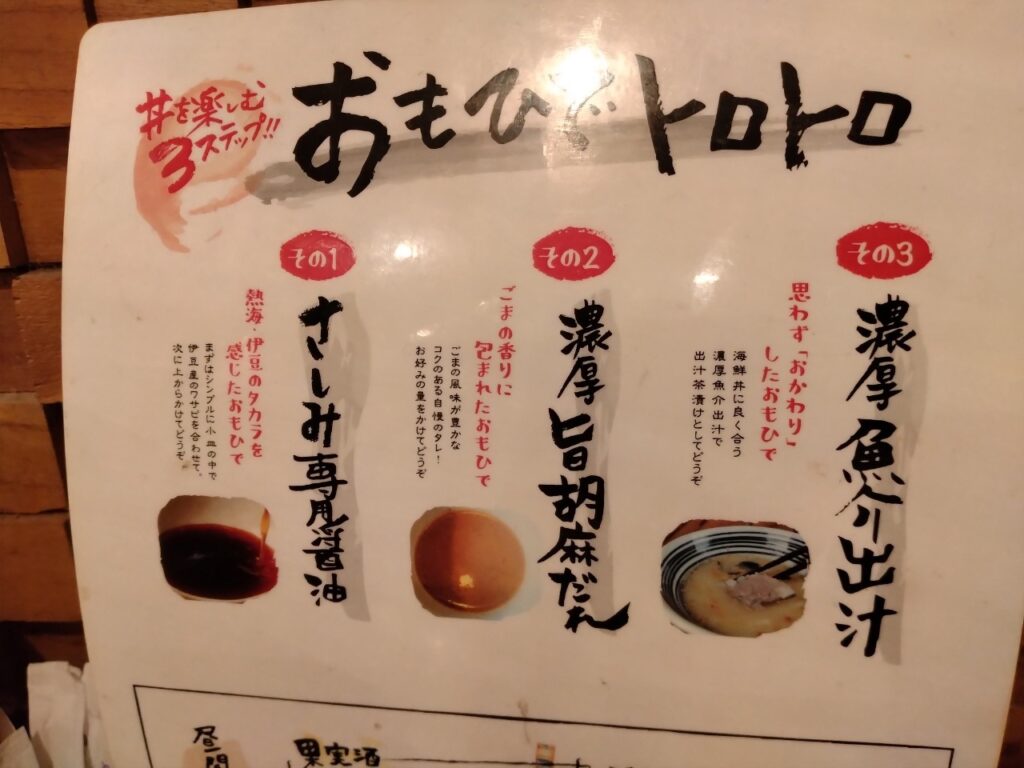 丼を楽しむ
3ステップ!!
おもひでトロトロ
その1
さしみ専用醤油
熱海・伊豆のタカラを
感じたおもひで
まずはシンプルに小皿の中で
伊豆産のワサビを合わせて、
次に上からかけてどうぞ。
その2
濃厚旨胡麻だれ
ごまの香りに
包まれたおもひで
ごまの風味が豊かな
コクのある自慢のタレ!
お好みの量をかけてどうぞ
その3
濃厚魚介出汁
思わず「おかわり」
したおもひで
海鮮丼に良く合う
濃厚魚介出汁で
出汁茶漬けとしてどうぞ
果実酒